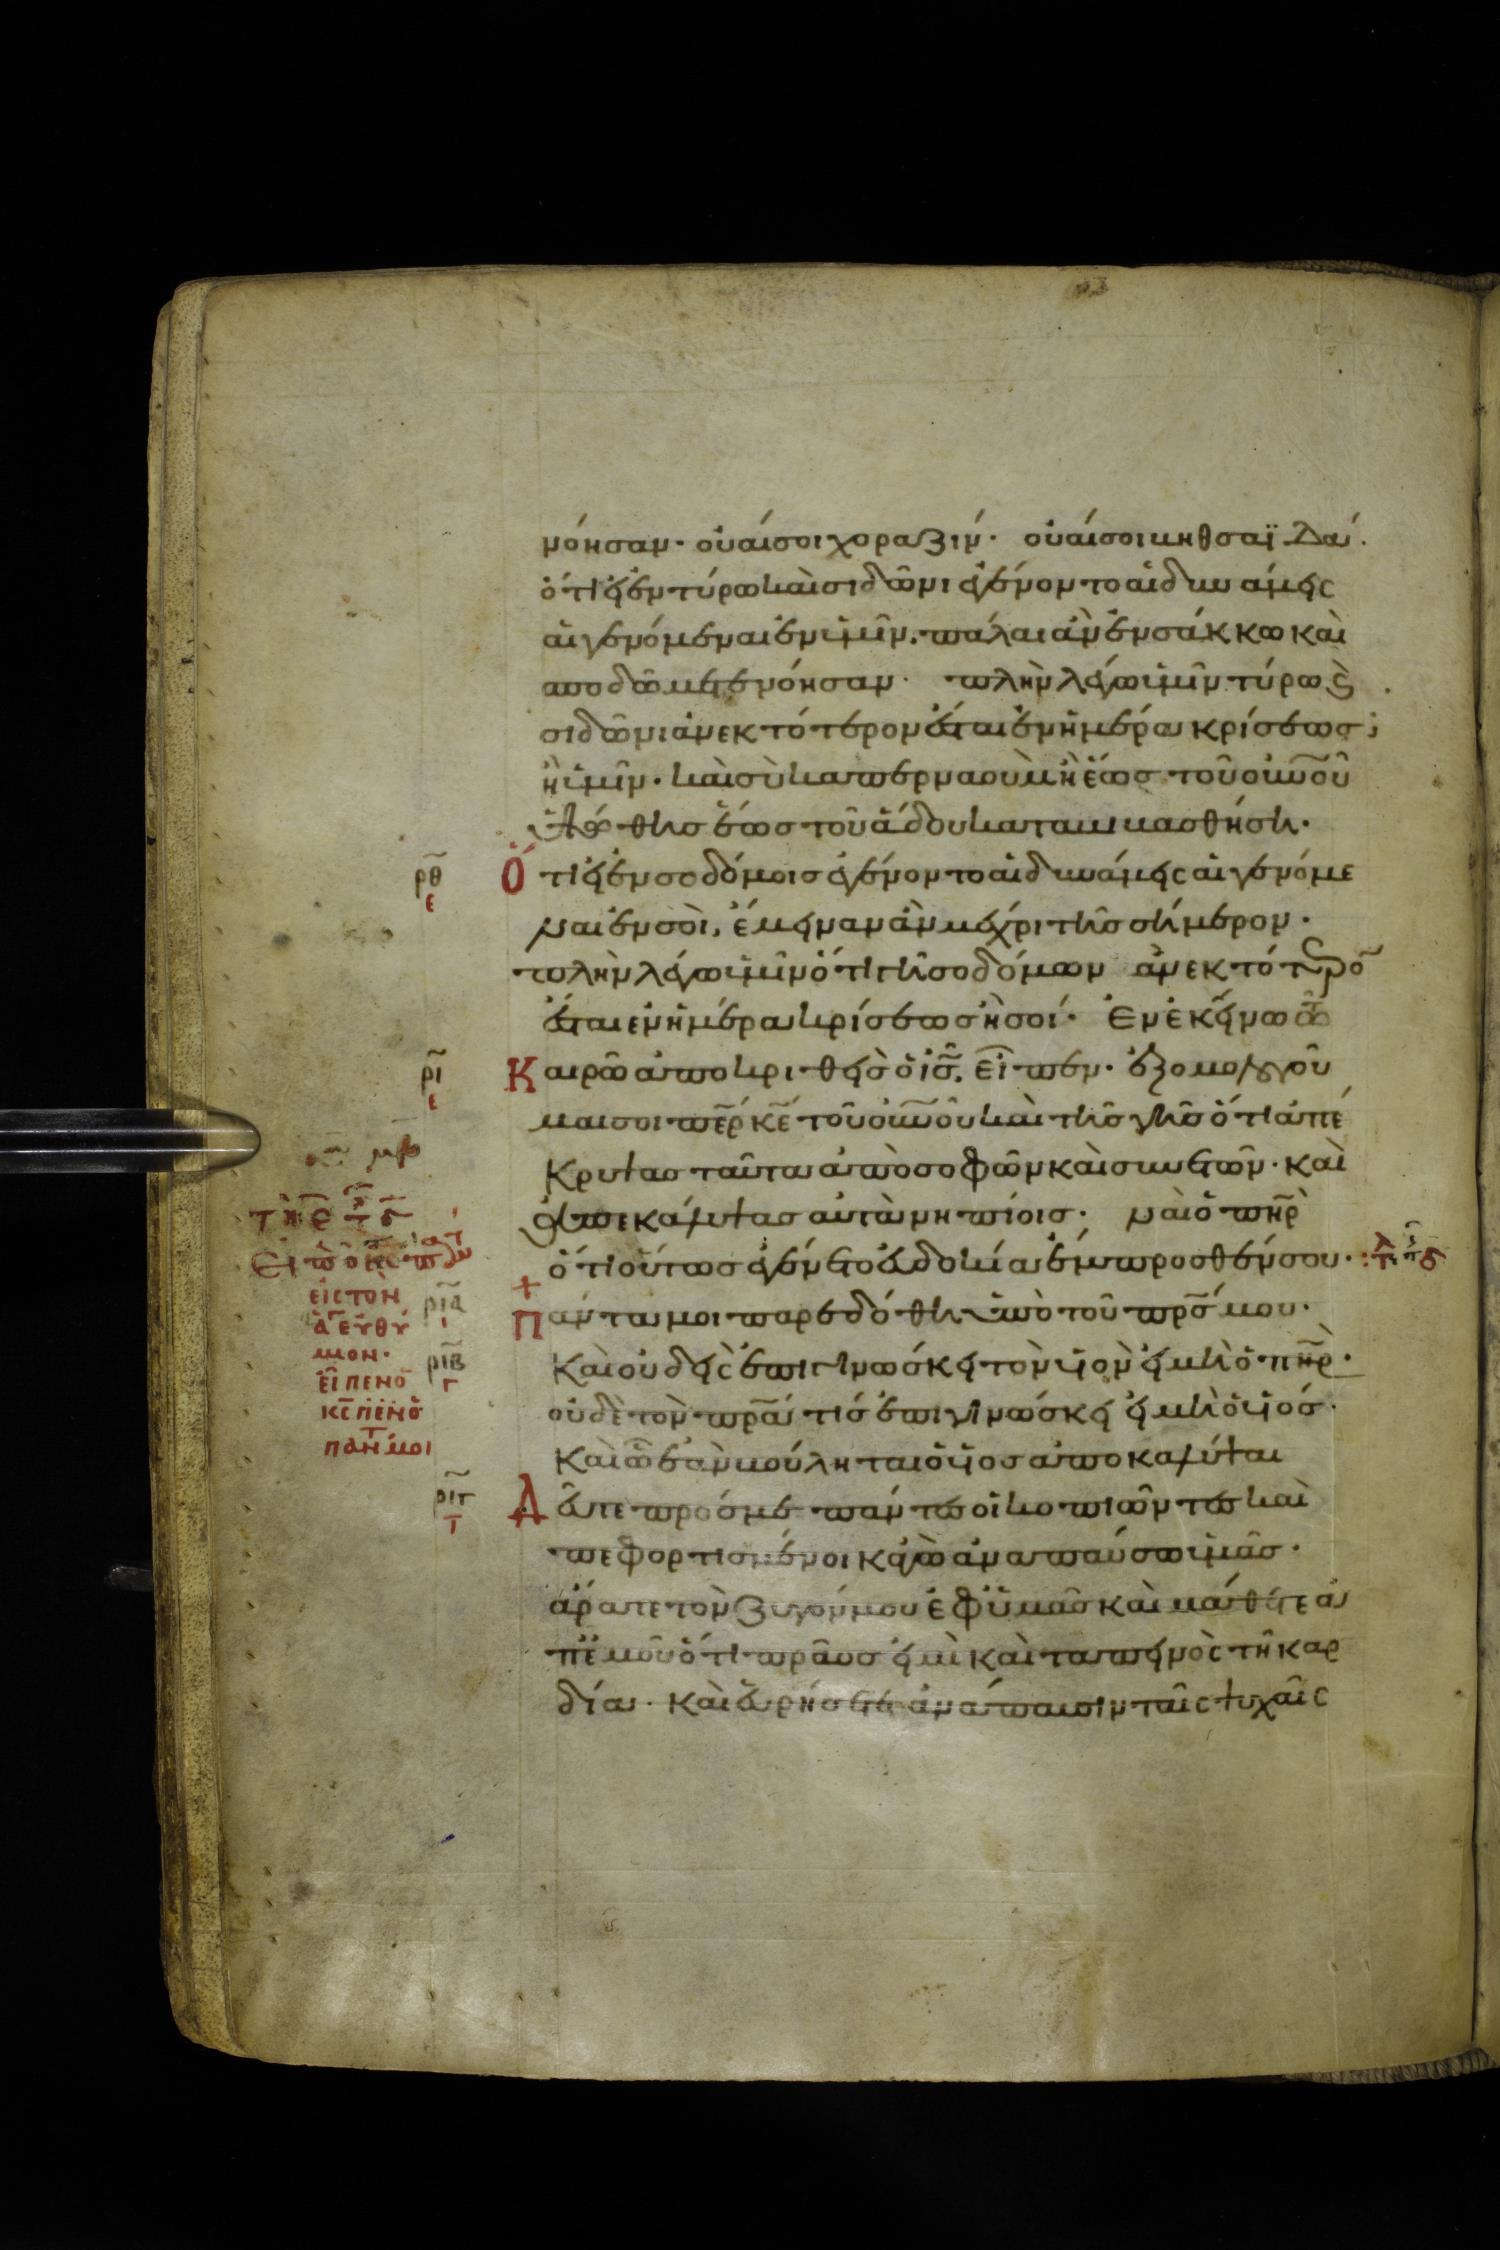 νόησαν· οὐαί σοι χοραζίν· οὐαί σοι βηθσαϊδάν·
ὅτι εἰ ἐν τύρω καὶ σιδῶνι ἐγένοντο αἱ δυνάμεις
αἱ γενόμεναι ἐν ὑμῖν, πάλαι ἂν ἐν σάκκω καὶ
σποδῶ μετενόησαν· πλὴν λέγω ὑμῖν τύρω ϗ
σιδῶνι ἀνεκτότερον ἔσται ἐν ἡμέρα κρίσεως
ἢ ὑμῖν· καὶ σὺ καπερναοὺμ ἡ ἕως τοῦ οὐνοῦ
ὑψωθεῖσ ἕως τοῦ ἅδου καταβιβασθήση·
Ὅτι εἰ ἐν σοδόμοισ ἐγένοντο αἱ δυνάμεις αἱ γενόμε
ναι ἐν σοὶ, ἔμειναν ἂν μέχρι τῆς σήμερον·
πλὴν λέγω ὑμῖν ὅτι γῆ σοδόμων ἀνεκτότερο
ἔσται ἐν ἡμέρα κρίσεως ἢ σοί· Ἐν ἐκείνω τῶ
Καιρῶ ἀποκριθεὶς ὁ ις, εἶπεν· ἐξομολογοῦ
μαι σοι περ κε τοῦ οὐνοῦ καὶ τῆς γῆς ὅτι ἀπέ
κρυψας ταῦτα ἀπὸ σοφῶν καὶ συνετῶν· καὶ
ἀπεκάλυψας αὐτὰ νηπίοις· ναὶ ὁ πηρ
ὅτι οὕτως ἐγένετο εὐδοκία ἔμπροσθέν σου·
Πάντα μοι παρεδόθη ὑπὸ τοῦ πρς μου·
Καὶ οὐδεὶς ἐπιγινώσκει τὸν υἱὸν εἰ μὴ ὁ πηρ·
οὐδὲ τὸν πρα τίς ἐπιγινώσκει εἰ μὴ ὁ υἱός·
Καὶ ὧ ἐὰν βούληται ὁ υἱος ἀποκαλύψαι
Δεῦτε πρός με πάντες οἱ κοπιῶντες καὶ
πεφορτισμένοι κἀγὼ ἀναπαύσω ὑμᾶς·
ἄρατε τὸν ζυγόν μου ἐφ ὑμᾶς καὶ μάθετε ἀ
π ἐμοῦ ὅτι πρᾶος εἰμὶ καὶ ταπεινὸς τῆ καρ
δία· καὶ εὑρήσετε ἀνάπαυσιν ταῖς ψυχαῖς
ρθ
ε
ρι
ε
εἰς τὸν
εὐθύ
μον·
εἶπεν ὁ
κς πεν ὁ
παν μοι
ρια
ριβ
γ
ριγ